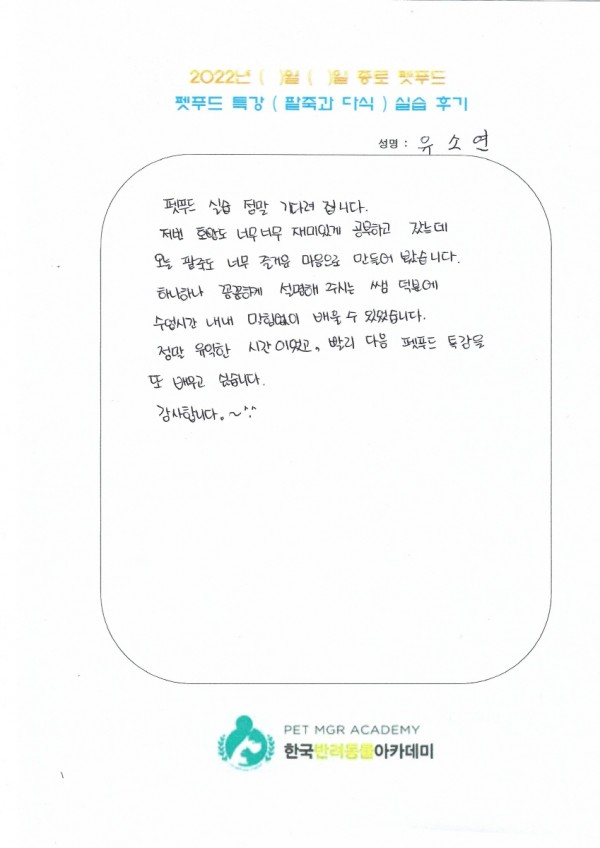 2022년 ( )월 ( )일 종로 펫푸드
펫푸드 특강 ( 팥죽과 다식 ) 실습 후기
성명 : 유 소 연
펫푸드 실습 정말 기다려 집니다.
저번 호안도 너무너무 재미있게 공욕하고 갔는데
오늘 팥죽도 너무 즐거운 마음으로 만들어 봤습니다.
하나하나 꼼꼼하게 설명해 주시는 쌤 덕분에
수업시간 내내 막힘없이 배울 수 있었습니다.
정말 유익한 시간이었고, 빨리 다음 펫푸드 특강을
또 배우고 싶습니다.
감사합니다.~^^
PET MGR ACADEMY
한국반려동물아카데미